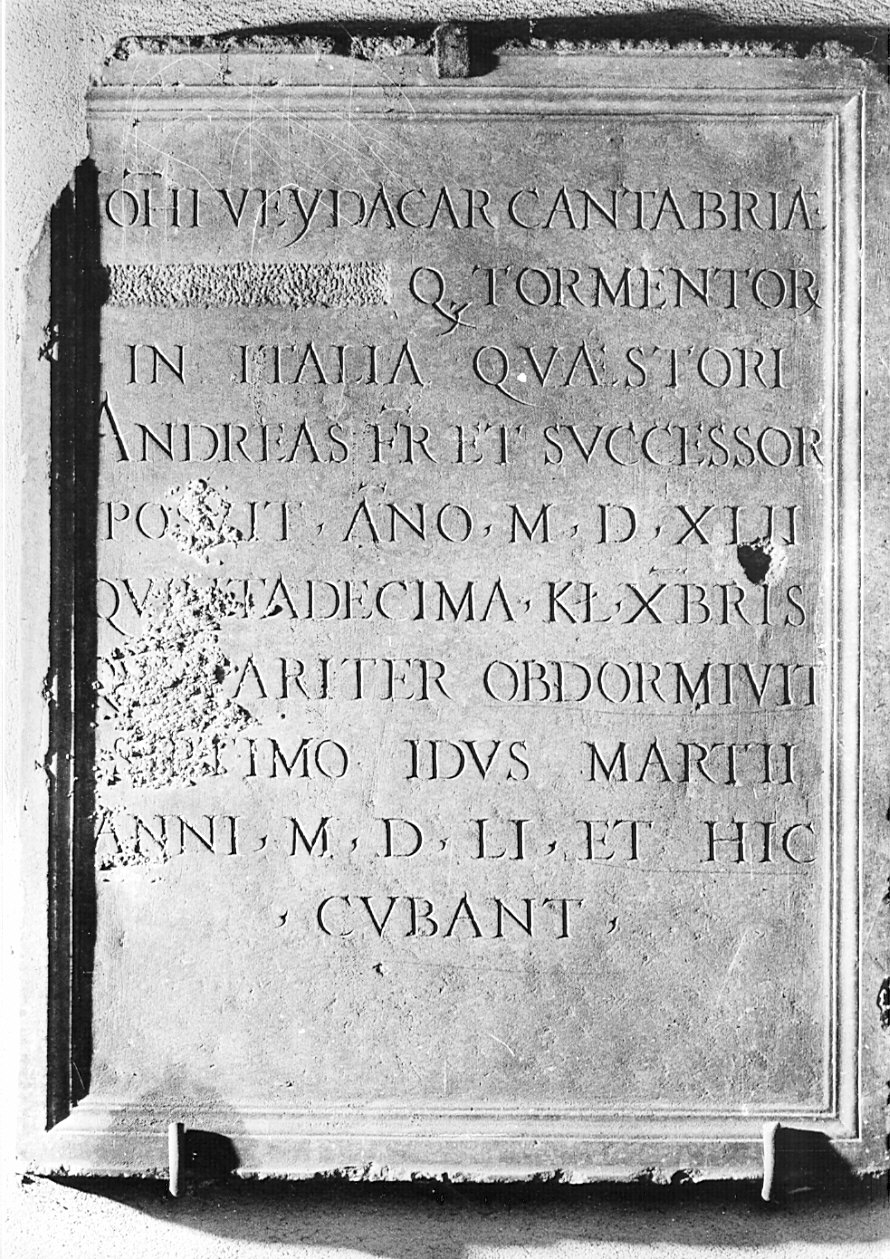 IOH̄I VEYDACAR CANTABRIÆ
Q TORMENTOR
IN ITALIA QVÆSTORI
ANDREAS FR ET SVCCESSOR
POSVIT, ANO, M, D, XLII
QVINTADECIMA, KL, XBRIS
OBDORMIVIT
IDVS MARTII
ANNI, M, D, LI, ET HIC
, CVBANT,